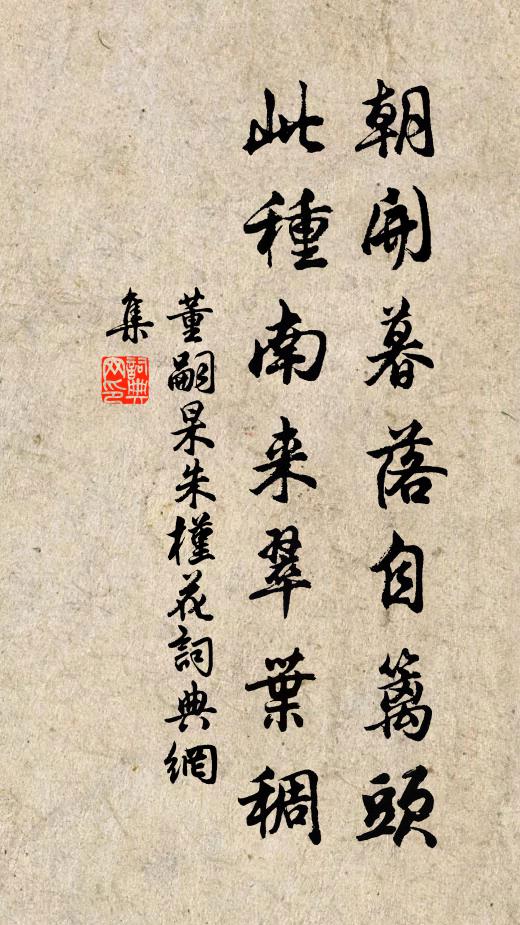 朝開暮落自籬頭
此種南来翠葉稠
董嗣杲朱槿花詞典網
集
詞典网印